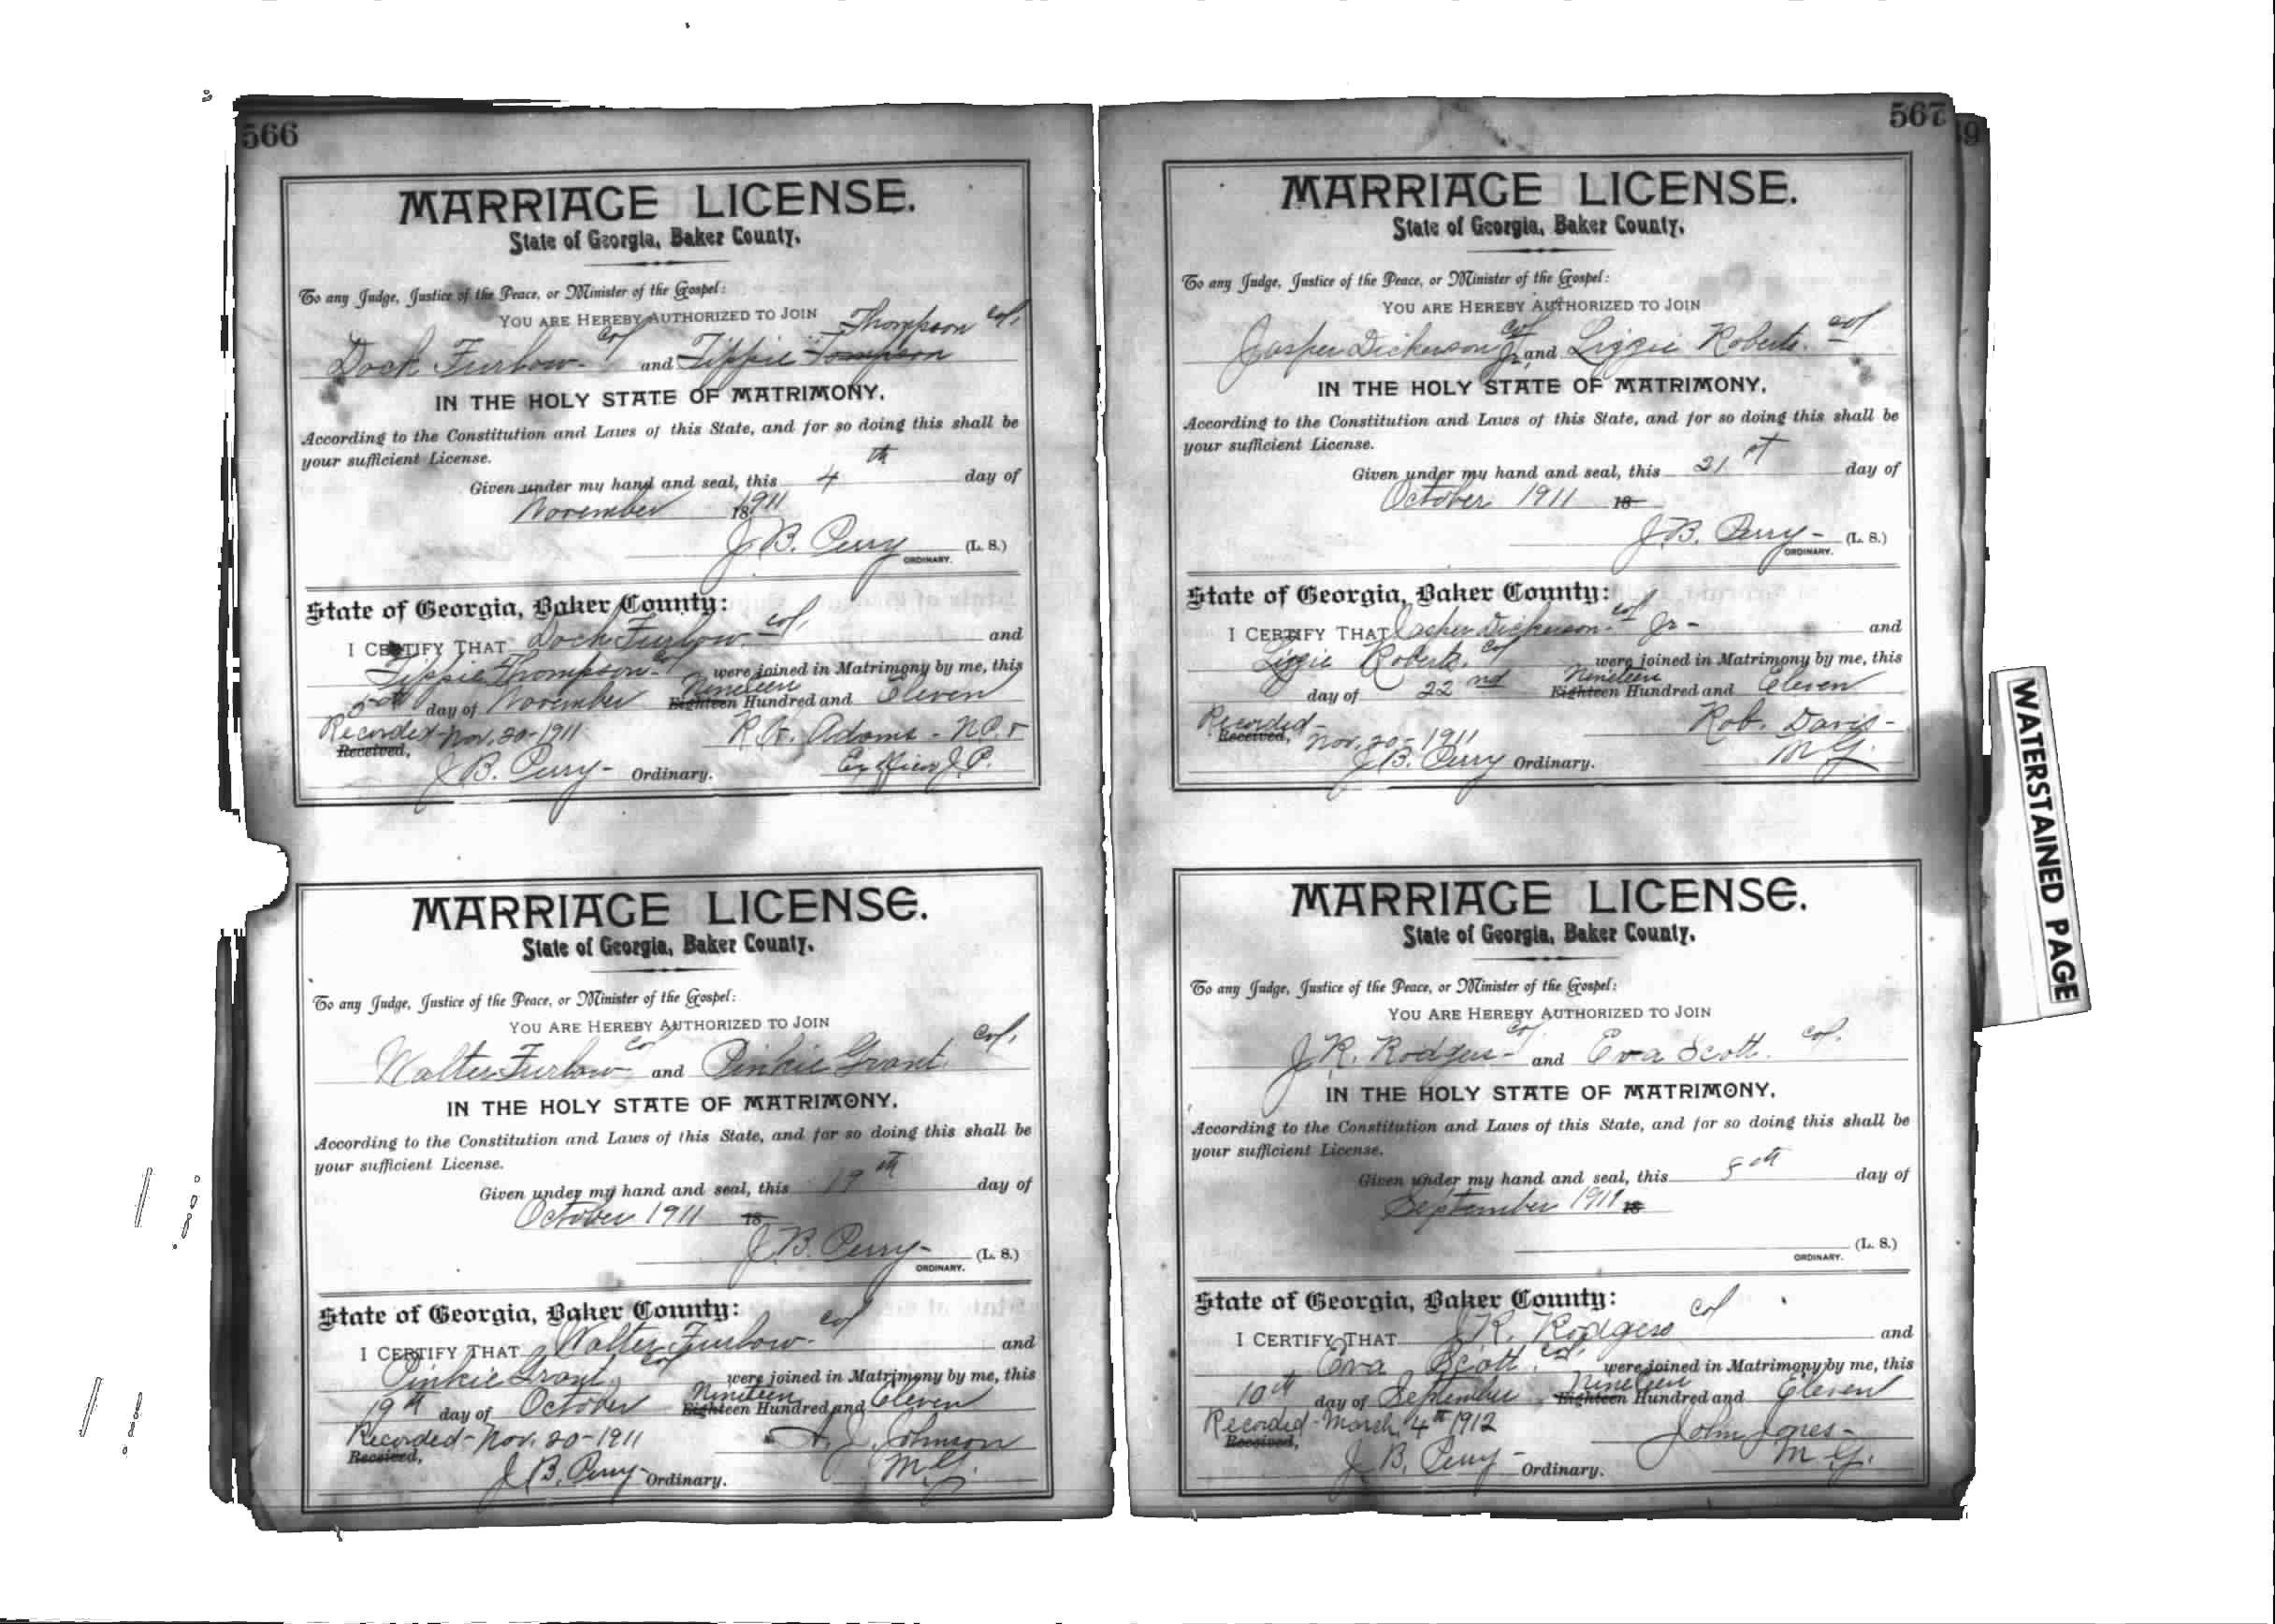 566
MARRIAGE LICENSE.
State of Georgia, Baker County,
To any Judge, Justice of the Peace, or Minister of the Gospel:
YOU ARE HEREBY AUTHORIZED TO JOIN Thompson col,
Dock Furlow- col and Tippie Tompson
IN THE HOLY STATE OF MATRIMONY,
According to the Constitution and Laws of this State, and for so doing this shall be
your sufficient License.
Given under my hand and seal, this 4th day of
November 18 1911
J. B. Perry (L. S.)
ORDINARY.
State of Georgia, Baker County:
I CERTIFY THAT Dock Furlow- col, and
Tippie Thompson- col were joined in Matrimony by me, this
Nineteen
5th day of November Eighteen Hundred and Eleven
Recorded- Nov. 20-1911 R. W. Adams - N.P. &
Received,
J. B. Perry- Ordinary. Ex officio J. P.
MARRIAGE LICENSE.
State of Georgia, Baker County,
To any Judge, Justice of the Peace, or Minister of the Gospel:
YOU ARE HEREBY AUTHORIZED TO JOIN
Walter Furlow col and Pinkie Grant. col,
IN THE HOLY STATE OF MATRIMONY,
According to the Constitution and Laws of this State, and for so doing this shall be
your sufficient License.
Given under my hand and seal, this 19th day of
October 1911 18
J. B. Perry- (L. S.)
ORDINARY.
State of Georgia, Baker County:
I CERTIFY THAT Walter Furlow- col and
Pinkie Grant, col were joined in Matrimony by me, this
Nineteen
19th day of October Eighteen Hundred and Eleven
Recorded- Nov. 20-1911 A. J. Johnson
Received,
J. B. Perry- Ordinary. M.G.
567
MARRIAGE LICENSE.
State of Georgia, Baker County,
To any Judge, Justice of the Peace, or Minister of the Gospel:
YOU ARE HEREBY AUTHORIZED TO JOIN
Jasper Dickerson Jr. col and Lizzie Roberts. col
IN THE HOLY STATE OF MATRIMONY,
According to the Constitution and Laws of this State, and for so doing this shall be
your sufficient License.
Given under my hand and seal, this 21st day of
October 1911 18
J. B. Perry- (L. S.)
ORDINARY.
State of Georgia, Baker County:
I CERTIFY THAT Jasper Dickerson- col Jr- and
Lizzie Roberts. col were joined in Matrimony by me, this
Nineteen
day of 22nd Eighteen Hundred and Eleven
Recorded- Rob. Davis-
Received, Nov. 20-1911 M G.
J. B. Perry Ordinary.
MARRIAGE LICENSE.
State of Georgia, Baker County,
To any Judge, Justice of the Peace, or Minister of the Gospel:
YOU ARE HEREBY AUTHORIZED TO JOIN
J. R. Rodgers- col and Eva Scott. col.
IN THE HOLY STATE OF MATRIMONY,
According to the Constitution and Laws of this State, and for so doing this shall be
your sufficient License.
Given under my hand and seal, this day of
September 1911 18
(L. S.)
ORDINARY.
State of Georgia, Baker County:
I CERTIFY THAT J. R. Rodgers col and
Eva Scott. col, were joined in Matrimony by me, this
Nineteen
10th day of September Eighteen Hundred and Eleven
Recorded- March 4th 1912 John Jones-
Received, M. G.
J. B. Perry- Ordinary.
WATERSTAINED PAGE